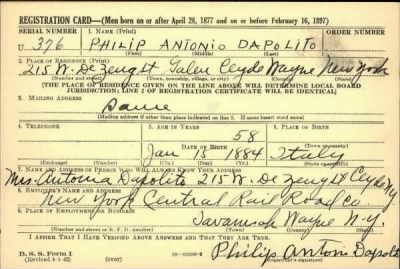 REGISTRATION CARD—(Men born on or after April 28, 1877 and on or before February 16, 1897)
SERIAL NUMBER 1. NAME (Print) ORDER NUMBER
U 376 PHILIP ANTONIO DAPOLITO
(First) (Middle) (Last)
2. PLACE OF RESIDENCE (Print)
215 W. De Zeng St Galen Clyde Wayne New York
(Number and street) (Town, township, village, or city) (County) (State)
[THE PLACE OF RESIDENCE GIVEN ON THE LINE ABOVE WILL DETERMINE LOCAL BOARD
JURISDICTION; LINE 2 OF REGISTRATION CERTIFICATE WILL BE IDENTICAL]
3. MAILING ADDRESS
Same
[Mailing address if other than place indicated on line 2. If same insert word same]
4. TELEPHONE 5. AGE IN YEARS 6. PLACE OF BIRTH
58
DATE OF BIRTH (Town or county)
Jan 15 1884 Italy
(Exchange) (Number) (Mo.) (Day) (Yr.) (State or country)
7. NAME AND ADDRESS OF PERSON WHO WILL ALWAYS KNOW YOUR ADDRESS
Mrs. Antonia Dapolito 215 W. De Zeng St Clyde N.Y.
8. EMPLOYER'S NAME AND ADDRESS
New York Central Rail Road Co.
9. PLACE OF EMPLOYMENT OR BUSINESS
Savannah Wayne N.Y.
(Number and street or R. F. D. number) (Town) (County) (State)
I AFFIRM THAT I HAVE VERIFIED ABOVE ANSWERS AND THAT THEY ARE TRUE.
D. S. S. Form 1
(Revised 4-1-42) (over) Philip Antoni Dapolit